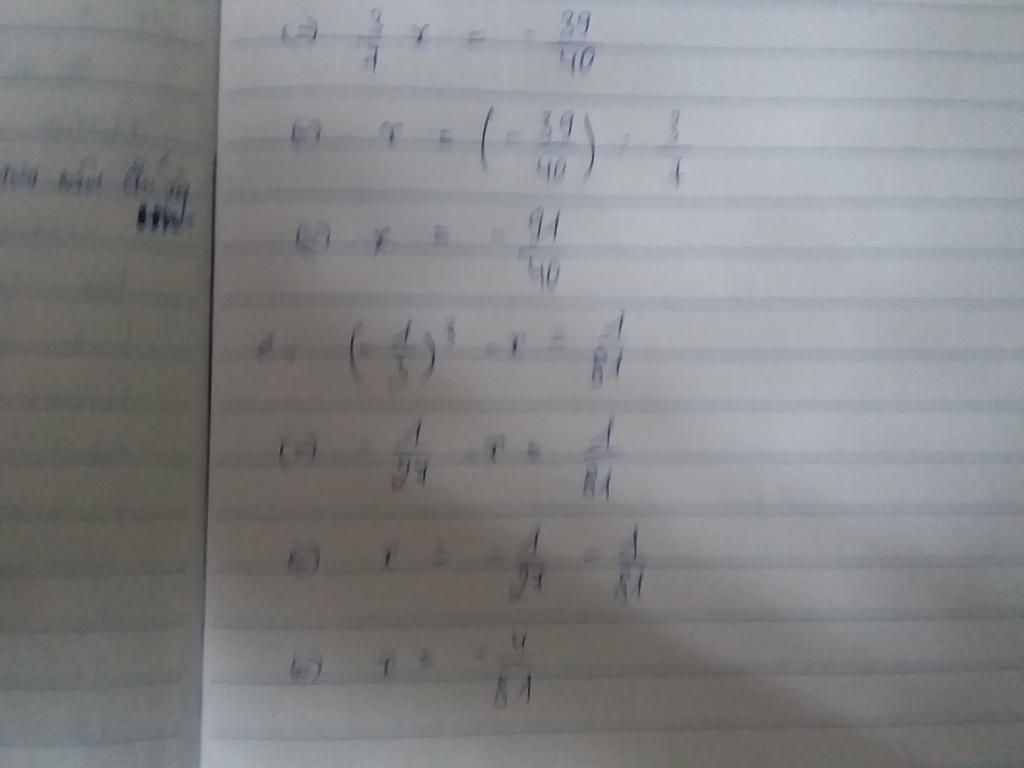 <=> 3/7 x = -39/40
<=> x = (-39/40) : 3/7
<=> x = -91/40
e, (-1/3)^3 - x = 1/81
<=> -1/27 - x = 1/81
<=> x = -1/27 - 1/81
<=> x = -4/81